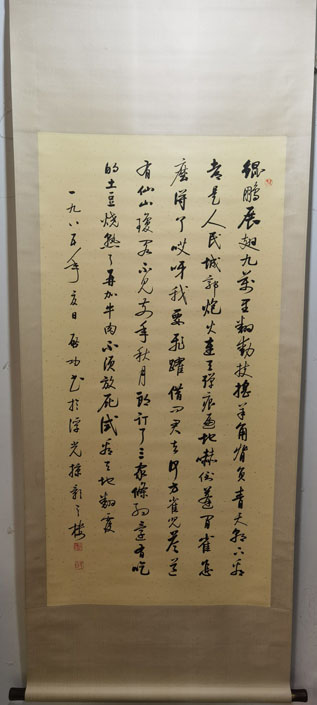 鲲鹏展翅九萬里翻動扶搖羊角背負青天朝下看
都是人民城郭炮火連天彈痕遍地嚇倒蓬間雀怎
麼得了哎呀我要飛躍借问君去何方雀兒答道
有仙山瓊閣不見前年秋月朗訂了三家條約還有吃
的土豆燒熟了再加牛肉不須放屁試看天地翻覆
一九八五年夏日啟功書於浮光掠影之樓